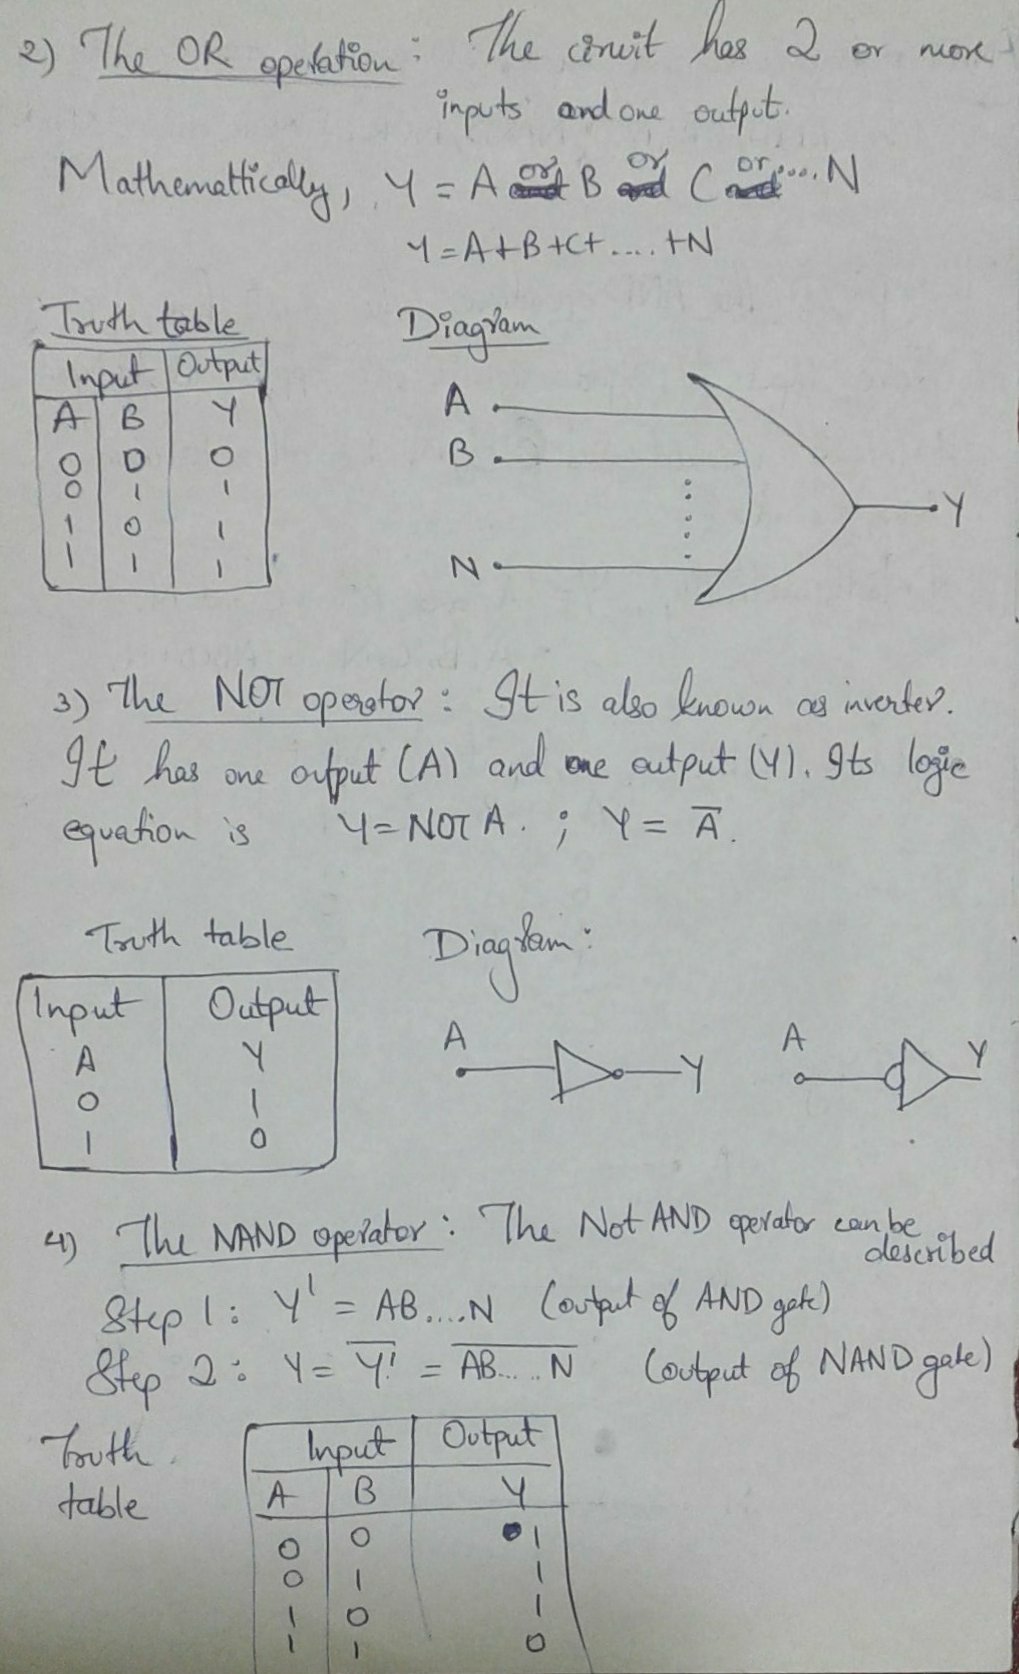 2) The OR operation : The ciruit has 2 or more
inputs and one output.
Mathemattically, Y = A or B or C or .... N
Y = A+B+C+ .... +N
Truth table Diagram
Input Output
A B Y
0 0 0
0 1 1
1 0 1
1 1 1
A
B
N
Y
3) The NOT operator : It is also known as inverter.
It has one output (A) and one output (Y). Its logic
equation is Y = NOT A. ; Y = A̅.
Truth table Diagram :
Input Output
A Y
0 1
1 0
A Y A Y
4) The NAND operator : The Not AND operator can be
described
Step 1 : Y' = AB....N (output of AND gate)
Step 2 : Y = Y̅'̅ = A̅B̅.̅.̅.̅.̅.̅N̅ (output of NAND gate)
Truth
table
Input Output
A B Y
0 0 1
0 1 1
1 0 1
1 1 0